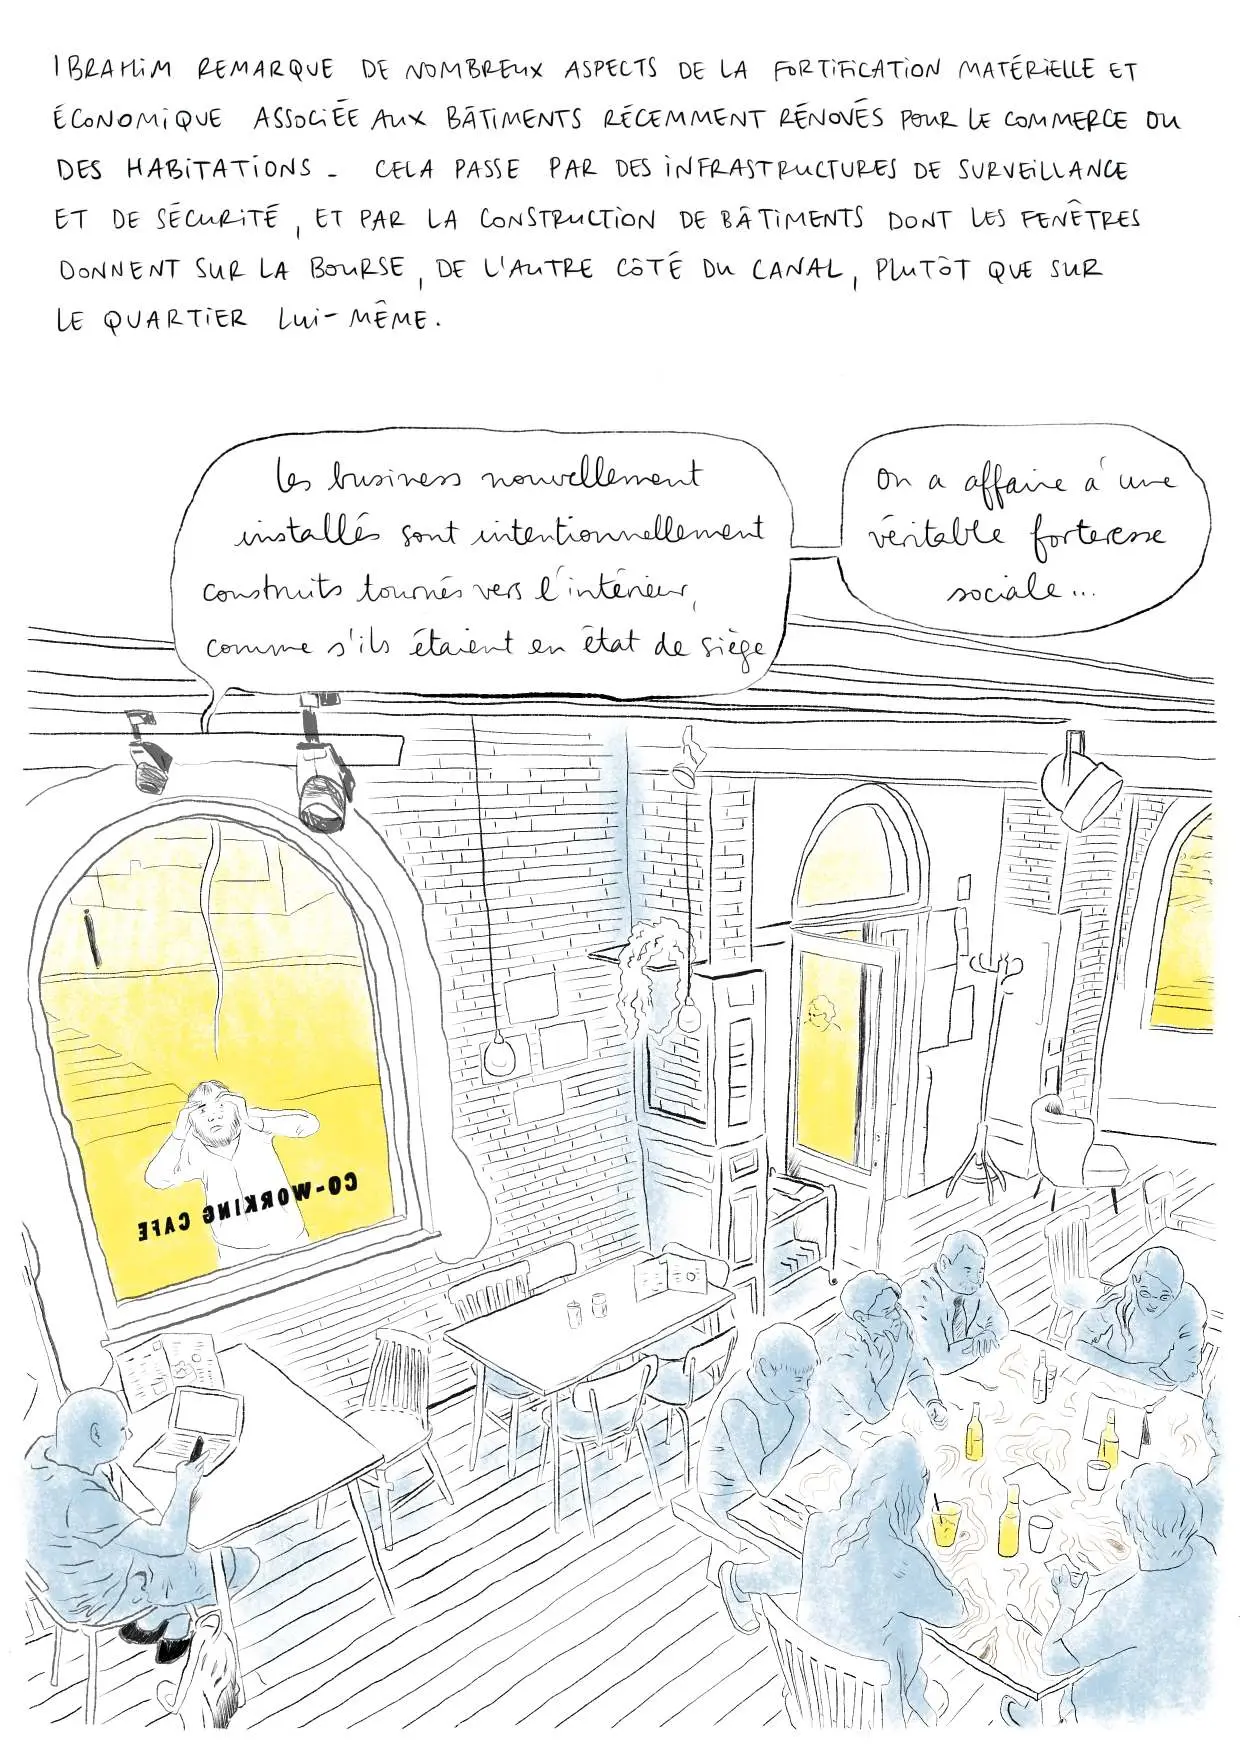 IBRAHIM REMARQUE DE NOMBREUX ASPECTS DE LA FORTIFICATION MATÉRIELLE ET
ÉCONOMIQUE ASSOCIÉE AUX BÂTIMENTS RÉCEMMENT RÉNOVÉS POUR LE COMMERCE OU
DES HABITATIONS. CELA PASSE PAR DES INFRASTRUCTURES DE SURVEILLANCE
ET DE SÉCURITÉ, ET PAR LA CONSTRUCTION DE BÂTIMENTS DONT LES FENÊTRES
DONNENT SUR LA BOURSE, DE L'AUTRE CÔTÉ DU CANAL, PLUTÔT QUE SUR
LE QUARTIER LUI-MÊME.
Les business nouvellement
installés sont intentionnellement
construits tournés vers l'intérieur,
comme s'ils étaient en état de siège
On a affaire à une
véritable forteresse
sociale...
CO-WORKING CAFE